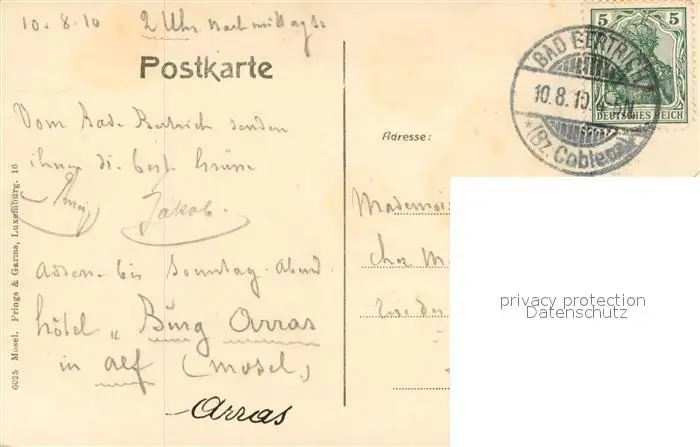 10. 8. 10 2 Uhr nachmittags
Postkarte
Vom Bad Bertrich senden
ihnen di. best. Grüsse
Jakob.
Adden. bis Sonntag. Abend.
hôtel „ Burg Arras
in Alf (Mosel.)
Arras
6025 Mosel. Frings & Garms, Luxembourg. 16
5 5
DEUTSCHES REICH
BAD BERTRICH
10.8.10.
*(Bz. Coblenz)
Adresse:
Mademois
chez M
rue de
privacy protection
Datenschutz